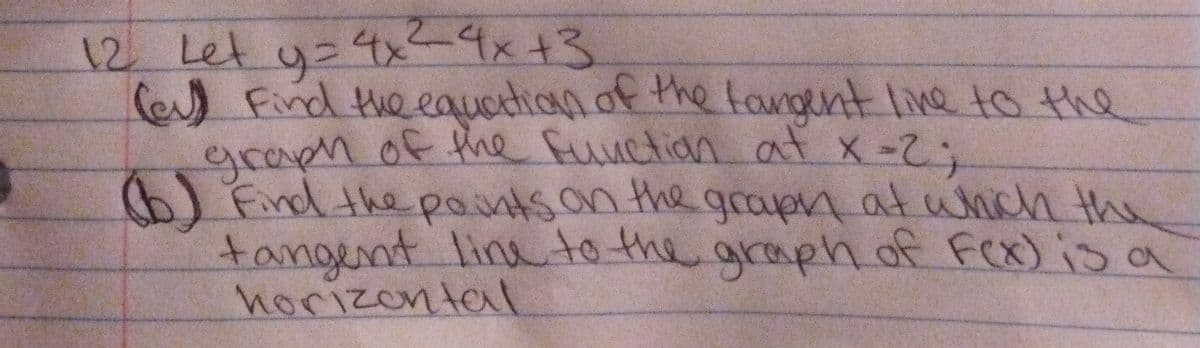 12 Let y = 4x²-4x+3
(a) Find the equation of the tangent line to the
graph of the function at x=2;
(b) Find the points on the graph at which the
tangent line to the graph of F(x) is a
horizontal